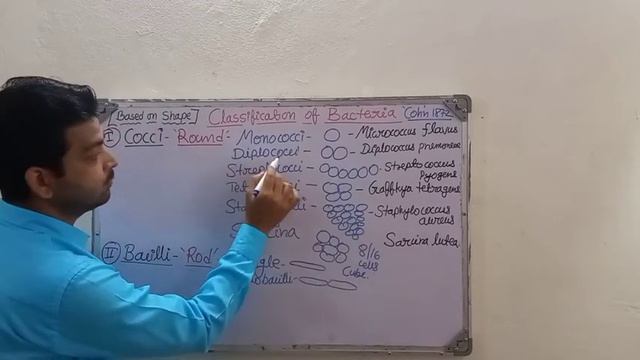 [Based on Shape] Classification of Bacteria Cohn 1872
I Cocci - Round - Monococci - - Micrococcus flavus
Diplococci - - Diplococcus pneumoniae
- Streptococcus
Pyogens
- Gaffkya tetragena
- Staphylococcus
aureus
Sarcina lutea
8/16
cells
Cube.
II Bacilli - Rod